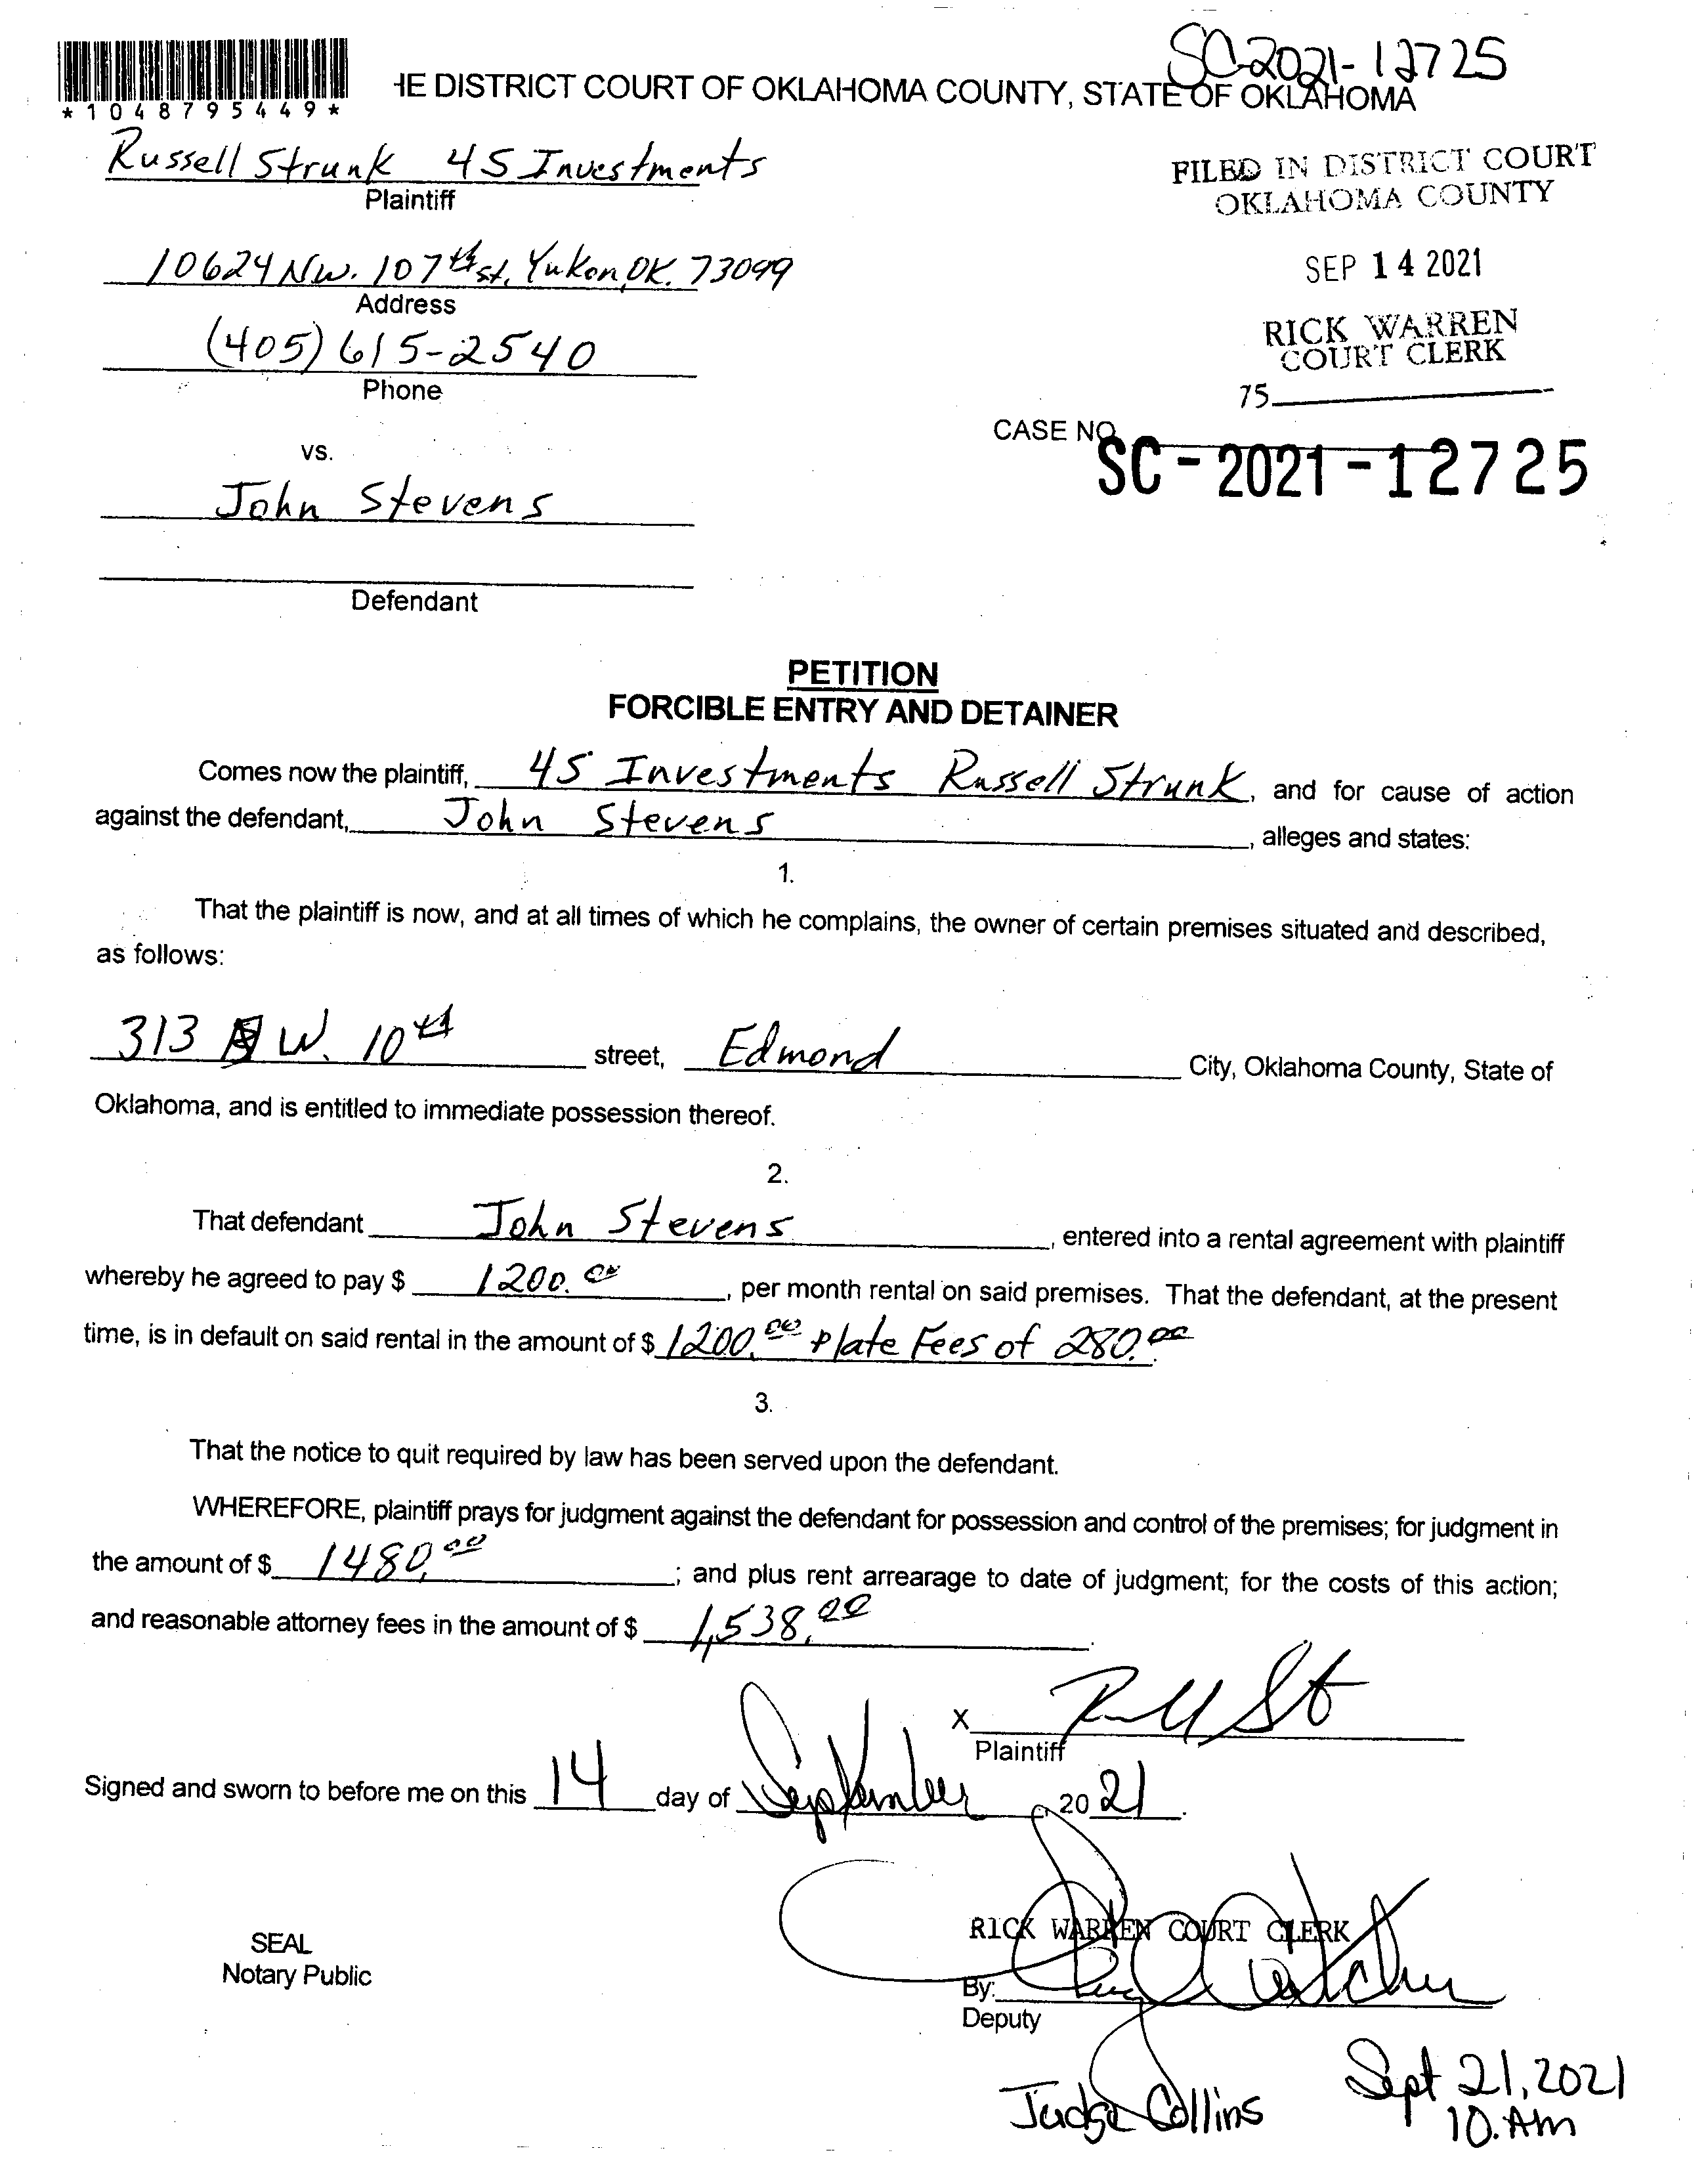 SC-2021-12725
*1048795449*
HE DISTRICT COURT OF OKLAHOMA COUNTY, STATE OF OKLAHOMA
Russell Strunk 4S Investments
Plaintiff
FILED IN DISTRICT COURT
OKLAHOMA COUNTY
10624 NW. 107th st. Yukon, OK. 73099
Address
SEP 14 2021
(405) 615-2540
Phone
RICK WARREN
COURT CLERK
75
CASE NO.
SC-2021-12725
vs.
John Stevens
Defendant
PETITION
FORCIBLE ENTRY AND DETAINER
Comes now the plaintiff, 4S Investments Russell Strunk, and for cause of action
against the defendant, John Stevens, alleges and states:
1.
That the plaintiff is now, and at all times of which he complains, the owner of certain premises situated and described,
as follows:
313 W. 10th street, Edmond City, Oklahoma County, State of
Oklahoma, and is entitled to immediate possession thereof.
2.
That defendant John Stevens, entered into a rental agreement with plaintiff
whereby he agreed to pay $ 1200.00, per month rental on said premises. That the defendant, at the present
time, is in default on said rental in the amount of $ 1200.00 + late Fees of 280.00.
3.
That the notice to quit required by law has been served upon the defendant.
WHEREFORE, plaintiff prays for judgment against the defendant for possession and control of the premises; for judgment in
the amount of $ 1480.00; and plus rent arrearage to date of judgment; for the costs of this action;
and reasonable attorney fees in the amount of $ 1,538.00.
X
Plaintiff
Signed and sworn to before me on this 14 day of September, 2021.
SEAL
Notary Public
RICK WARREN COURT CLERK
By:
Deputy
Judge Collins
Sept 21, 2021
10. Am